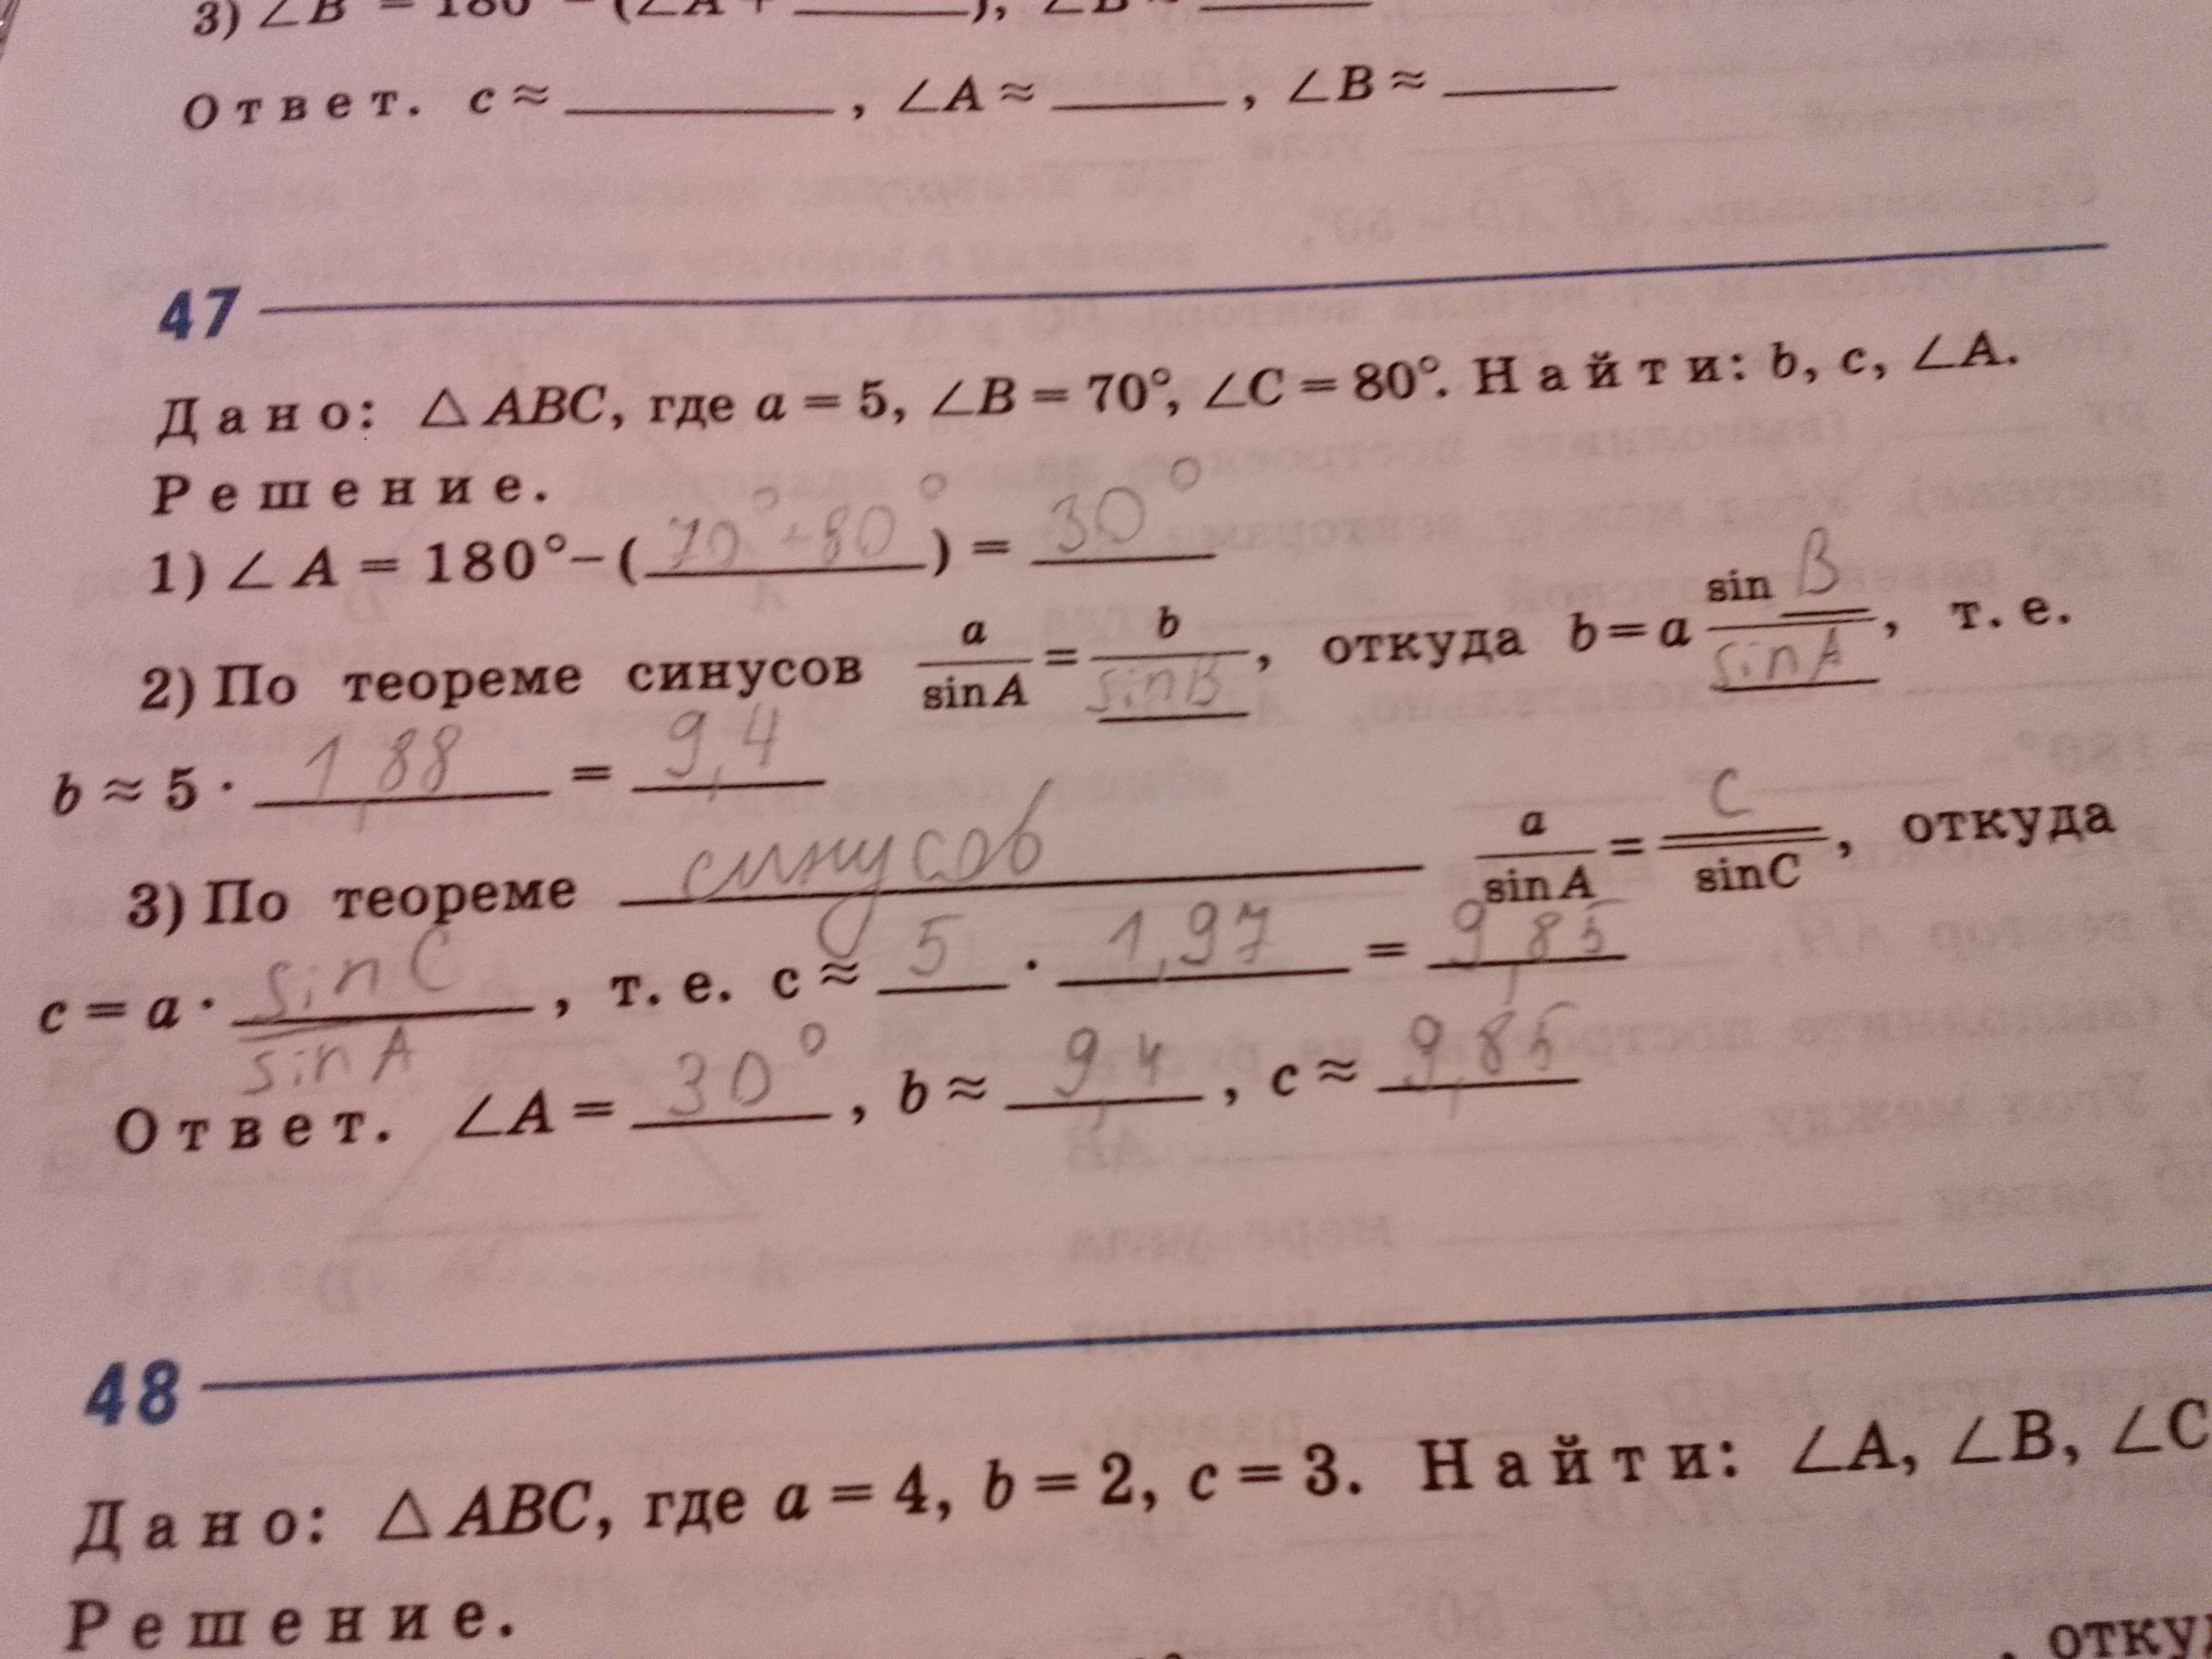 3) ∠B = 180° − (∠A + ______), ∠B ≈ ______
Ответ. c ≈ ______, ∠A ≈ ______, ∠B ≈ ______
47
Дано: △ABC, где a = 5, ∠B = 70°, ∠C = 80°. Найти: b, c, ∠A.
Решение.
1) ∠A = 180° − (70° + 80°) = 30°
2) По теореме синусов a/sin A = b/sin B, откуда b = a sin B/sin A, т. е.
b ≈ 5 · 1,88 = 9,4
3) По теореме синусов a/sin A = c/sin C, откуда
c = a · sin C/sin A, т. е. c ≈ 5 · 1,97 = 9,85
Ответ. ∠A = 30°, b ≈ 9,4, c ≈ 9,85
48
Дано: △ABC, где a = 4, b = 2, c = 3. Найти: ∠A, ∠B, ∠C
Решение.
, отку